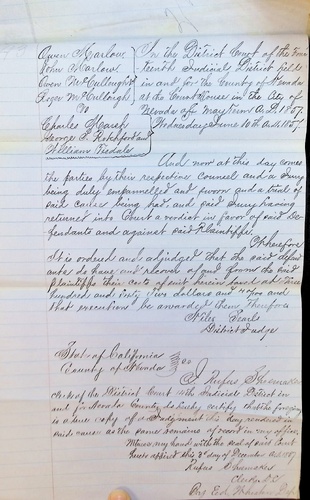 Owen Marlow
John Marlow
Owen McCullough
Roger McCullough
vs
Charles Marsh
George F. Rochford and
William Tisdale
In the District Court of the
teenth Judicial District held
in and for the County of Nevada
at the Court House in the City of
Nevada of May Term A.D. 1857.
Wednesday June 10th A.D. 1857.
And now at this day comes
the parties by their respective Counsel and a Jury
being duly empannelled and sworn and a trial of
said cause being had, and said Jury having
returned into Court a verdict in favor of said De
fendants and against said Plaintiffs.
Wherefore
It is ordered and adjudged that the said defend
ants do have and recover of and from the said
Plaintiffs their costs of suit herein taxed at Three
hundred and sixty five dollars and and
that execution be awarded them therefore
Niles Searls
District Judge
State of California
County of Nevada ss
I Rufus Shoemaker
clerk of the District Court Judicial District in
and for Nevada County do hereby certify that the foregoing
is a true copy of a Judgment this day rendered in
said cause as the same remains of record in my office
Witness my hand with the seal of said Court
hereto affixed this 3d day of December A.D. 1857
Rufus Shoemaker
Clerk